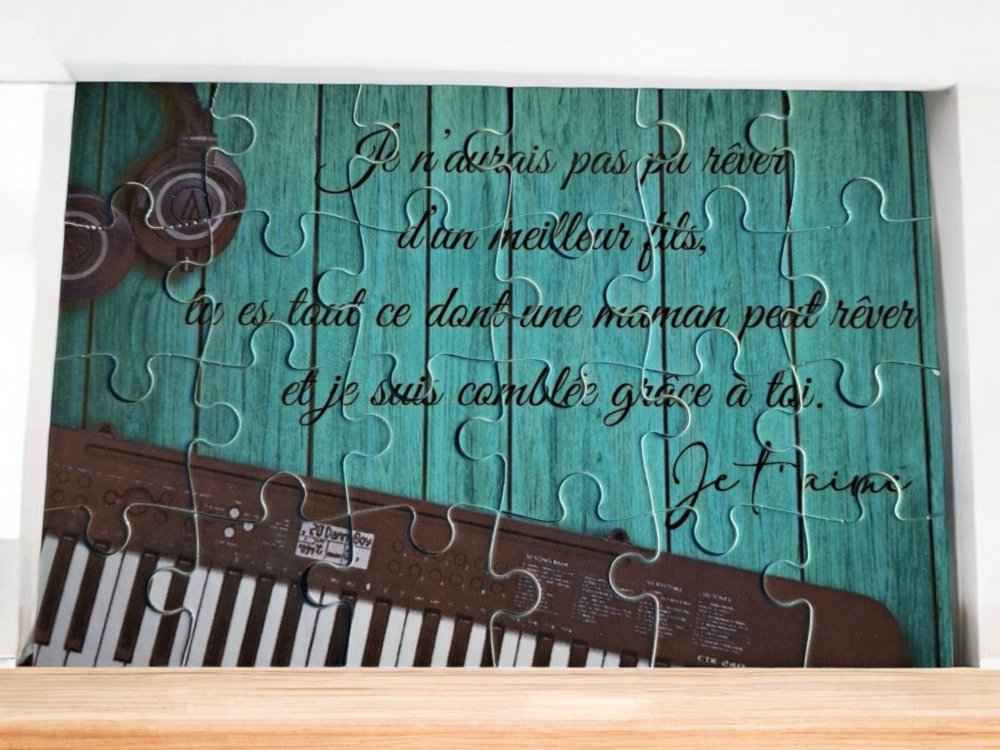 Je n'aurais pas pu rêver
d'un meilleur fils,
tu es tout ce dont une maman peut rêver
et je suis comblée grâce à toi.
Je t'aime
20 Danny Boy
SONG BANK
CTK 240